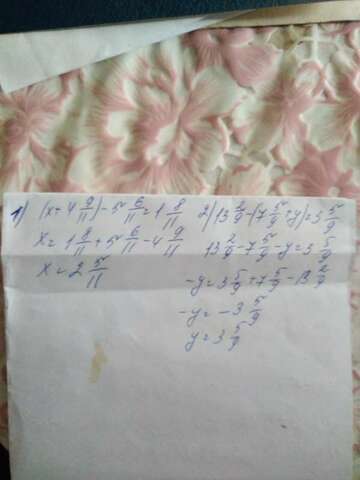 1) (x+4 9/11)-5 6/11=1 8/11
x=1 8/11+5 6/11-4 9/11
x=2 5/11
2) 13 2/9-(7 5/9+y)=3 5/9
13 2/9-7 5/9-y=3 5/9
-y=3 5/9+7 5/9-13 2/9
-y=-3 5/9
y=3 5/9